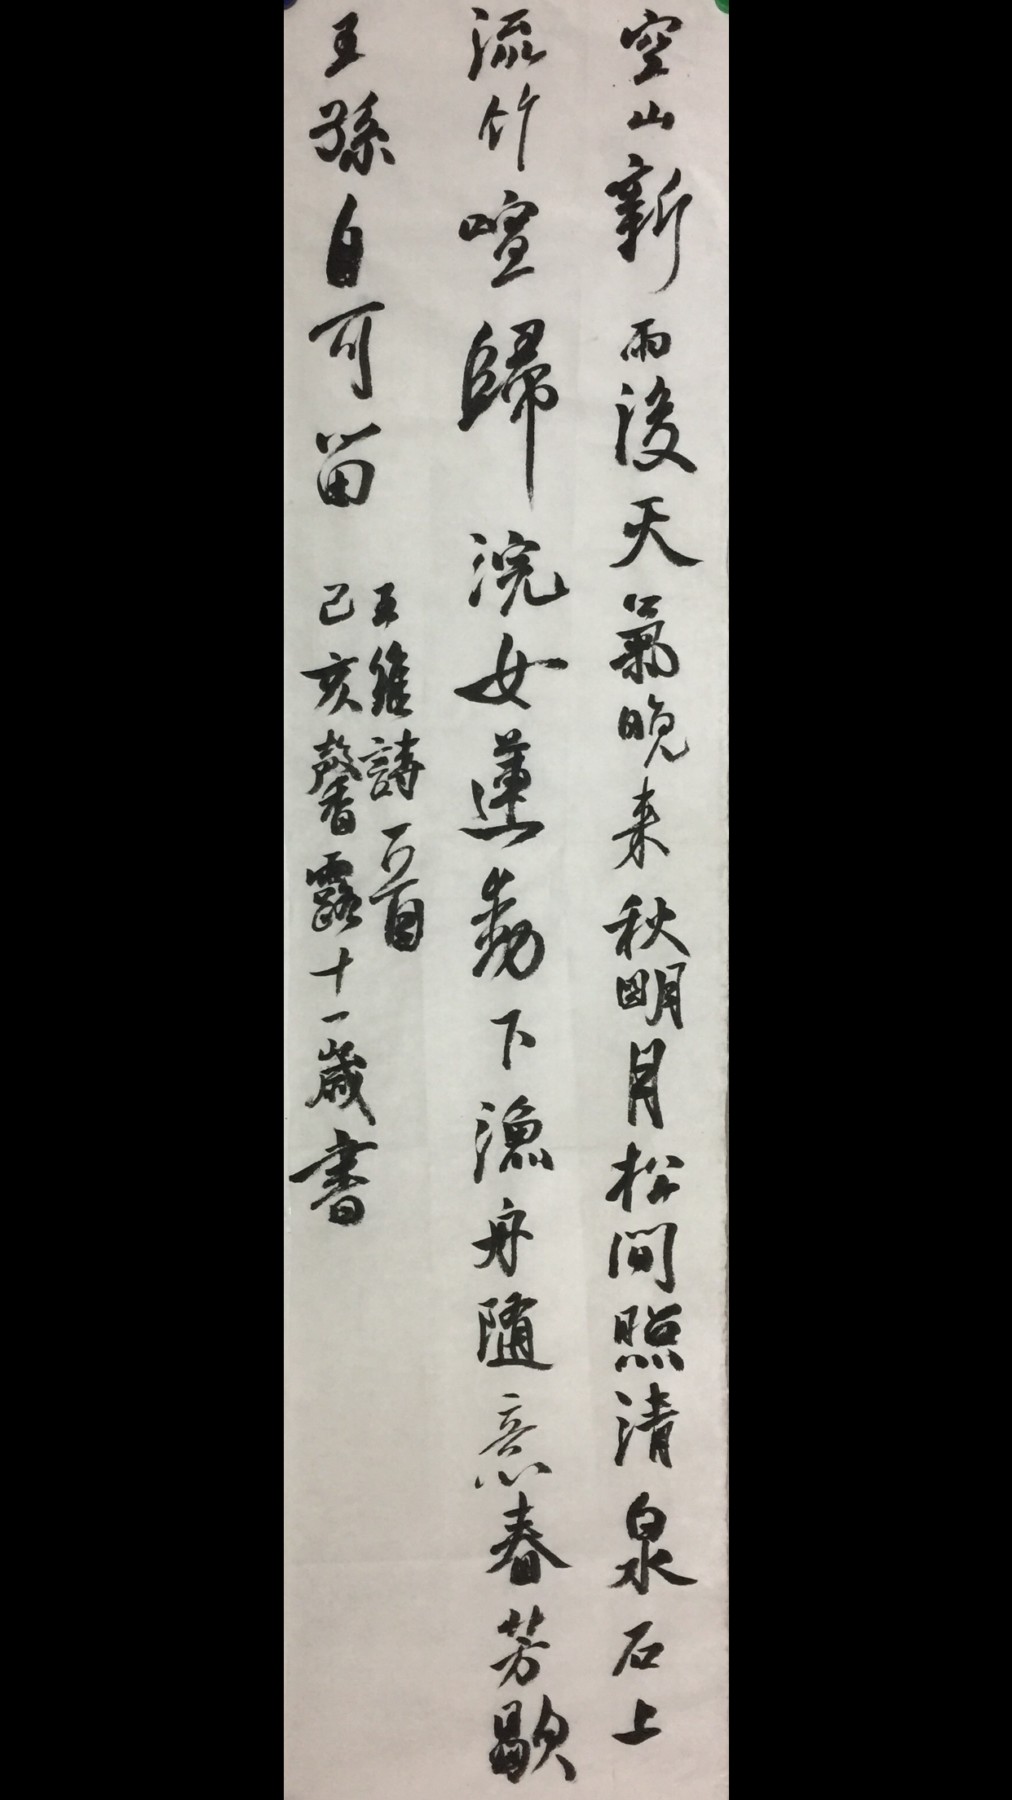 空山新雨後天氣晚来秋明月松間照清泉石上
流竹喧歸浣女蓮動下漁舟隨意春芳歇
王孫自可留
王維詩一首
己亥馨露十一歲書